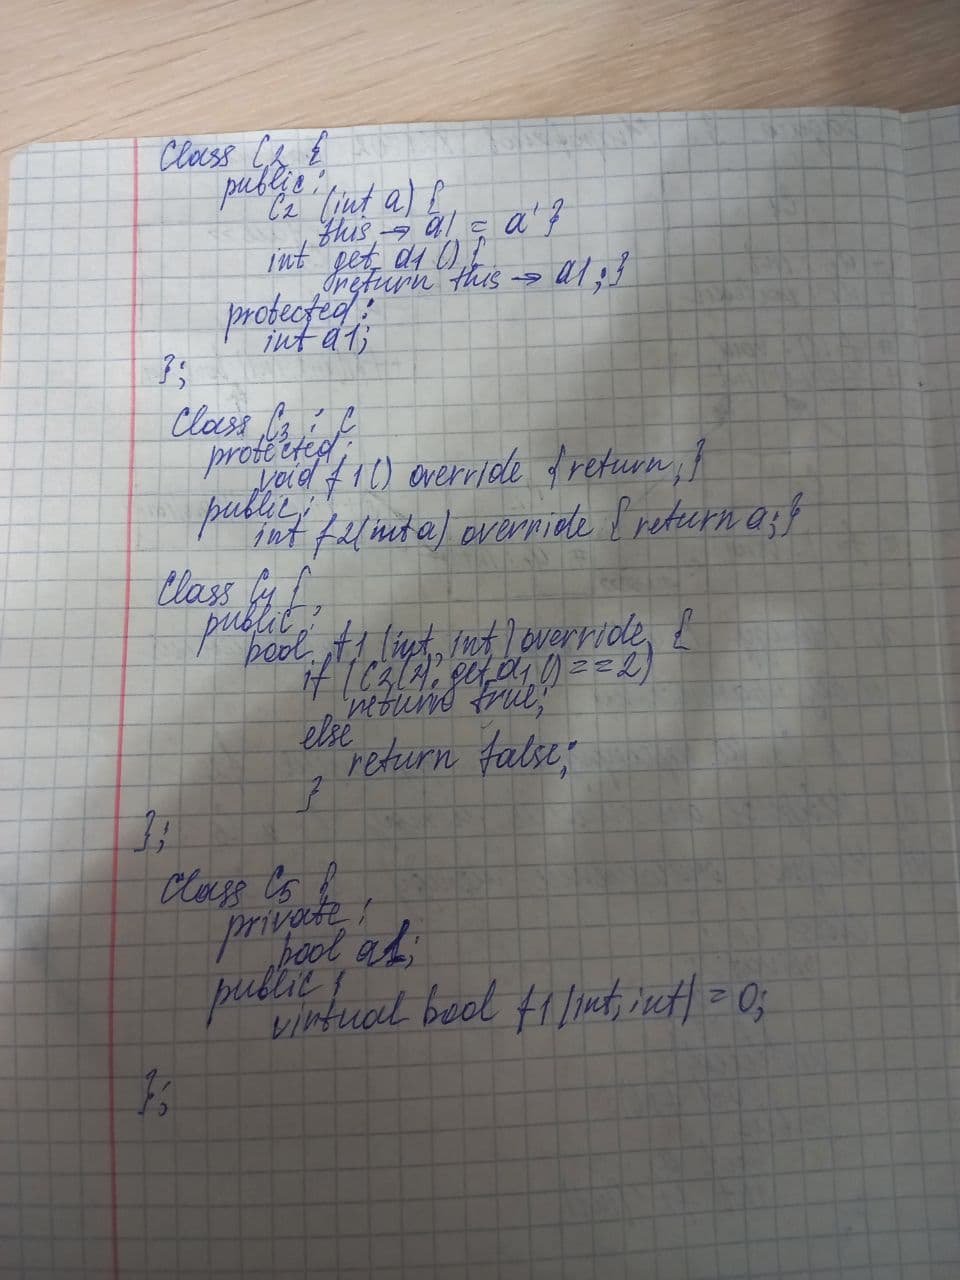 Class C2 {
public:
C2 (int a) {
this → a1 = a' }
int get_a1 () {
return this → a1; }
protected:
int a1;
};
Class C3 : C
protected:
void f1() override {return;}
public:
int f2(int a) override {return a;}
Class C4 {
public:
bool f1 (int, int) override {
if (C2(2). get_a1 () == 2)
return true;
else
return false;
}
};
Class C5 {
private:
bool a1;
public:
virtual bool f1 (int, int) = 0;
};